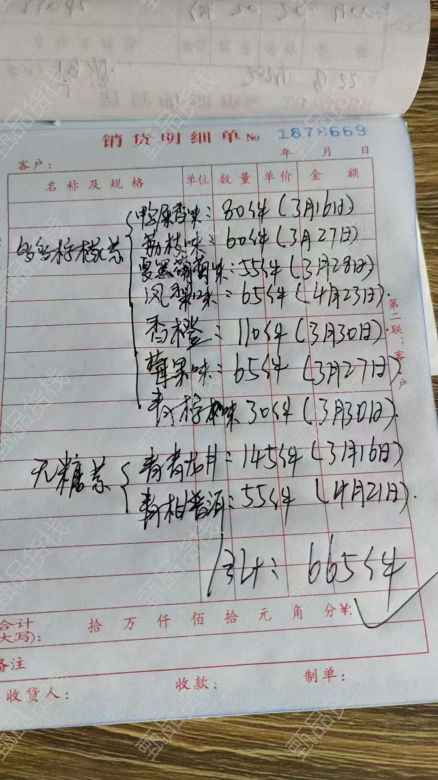 销货明细单 No 1878669
客户: 年 月 日
名称及规格 单位 数量 单价 金额
鸭屎香味: 80件 (3月16日)
荔枝味: 60件 (3月27日)
55件 (3月28日)
凤梨味: 65件 (4月23日).
香橙: 110件 (3月30日)
苹果味: 65件 (3月27日)
30件 (3月30日).
无糖茶
145件 (3月16日)
青柑普洱: 55件 (4月21日).
665件
第二联:客户
合计
大写): 拾 万 仟 佰 拾 元 角 分 ¥:
备注
收货人: 收款: 制单:
甄品货栈